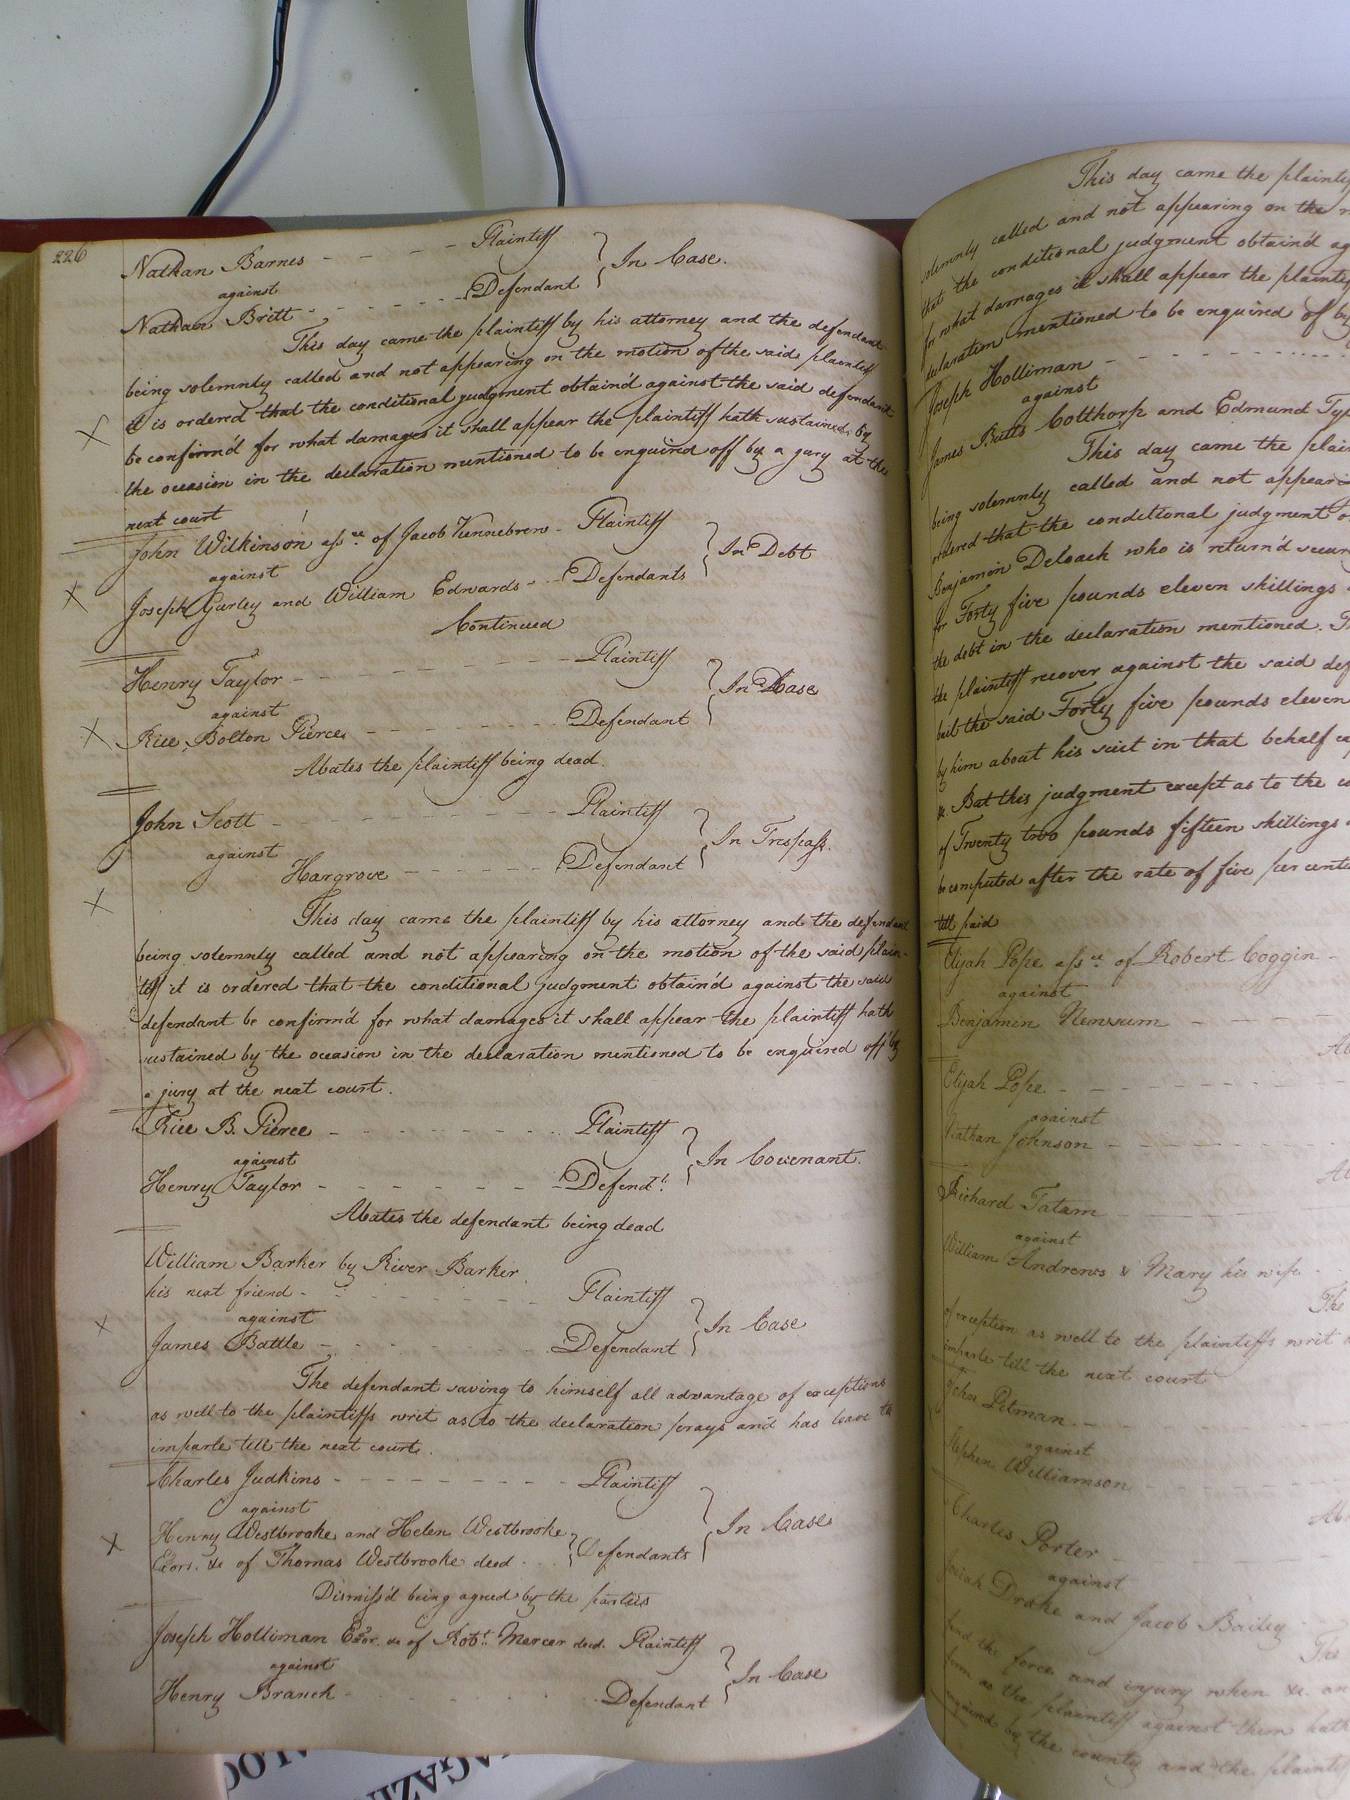 226
Nathan Barnes - - - - Plaintiff
against } In Case.
Nathan Britt - - - - - Defendant
This day came the plaintiff by his attorney and the defendant
being solemnly called and not appearing on the motion of the said plaintiff
it is ordered that the conditional judgment obtain'd against the said defendant
be confirm'd for what damages it shall appear the plaintiff hath sustained by
the occasion in the declaration mentioned to be enquired off by a jury at the
next court
John Wilkinson assee of Jacob Kennebrew - Plaintiff
against } In Debt
Joseph Gurley and William Edwards - - Defendants
Continued
Henry Taylor - - - - - - - Plaintiff
against } In Case
Rice Bolton Pierce - - - - - - Defendant
Abates the plaintiff being dead.
John Scott - - - - - - - - Plaintiff
against } In Trespass.
Hargrove - - - - - - Defendant
This day came the plaintiff by his attorney and the defendant
being solemnly called and not appearing on the motion of the said plain-
tiff it is ordered that the conditional judgment obtain'd against the said
defendant be confirm'd for what damages it shall appear the plaintiff hath
sustained by the occasion in the declaration mentioned to be enquired off by
a jury at the next court.
Rice B. Pierce - - - - - - - Plaintiff
against } In Covenant.
Henry Taylor - - - - - - - Defendt.
Abates the defendant being dead
William Barker by River Barker
his next friend - - - - - - Plaintiff
against } In Case
James Battle - - - - - - Defendant
The defendant saving to himself all advantage of exceptions
as well to the plaintiffs writ as to the declaration prays and has leave to
imparle till the next court.
Charles Judkins - - - - - - - - Plaintiff
against } In Case
Henry Westbrooke and Helen Westbrooke
Exors. &c of Thomas Westbrooke decd. - - - } Defendants
Dismiss'd being agreed by the parties
Joseph Holliman Exor. &c of Robt. Mercer decd. Plaintiff
against } In Case
Henry Branch - - - - - - Defendant
This day came the
solemnly called and not appearing on the
that the conditional judgment obtain'd
for what damages it shall appear the
declaration mentioned to be enquired of by
Joseph Holliman - - - - - - -
against
James Butts Colthorp and Edmund
This day came the
being solemnly called and not
ordered that the conditional judgment
Benjamin Deloach who is return'd
for Forty five pounds eleven shillings
the debt in the declaration mentioned.
the plaintiff recover against the said
bail the said Forty five pounds eleven
by him about his suit in that behalf
&c. But this judgment except as to the
of Twenty two pounds fifteen shillings
be computed after the rate of five per
till paid
Elijah Pope assee of Robert Coggin -
against
Benjamin Newsum - - -
Elijah Pope - - -
against
Nathan Johnson - - - - -
Richard Tatam - - - - -
against
William Andrews & Mary his wife - -
The
of exception as well to the plaintiffs writ
imparle till the next court
John Pitman - - -
against
Stephen Williamson - - -
Charles Porter - - -
against
Josiah Drake and Jacob Bailey -
The
fend the force and injury when &c.
form as the plaintiff against them hath
enquired by the county and the